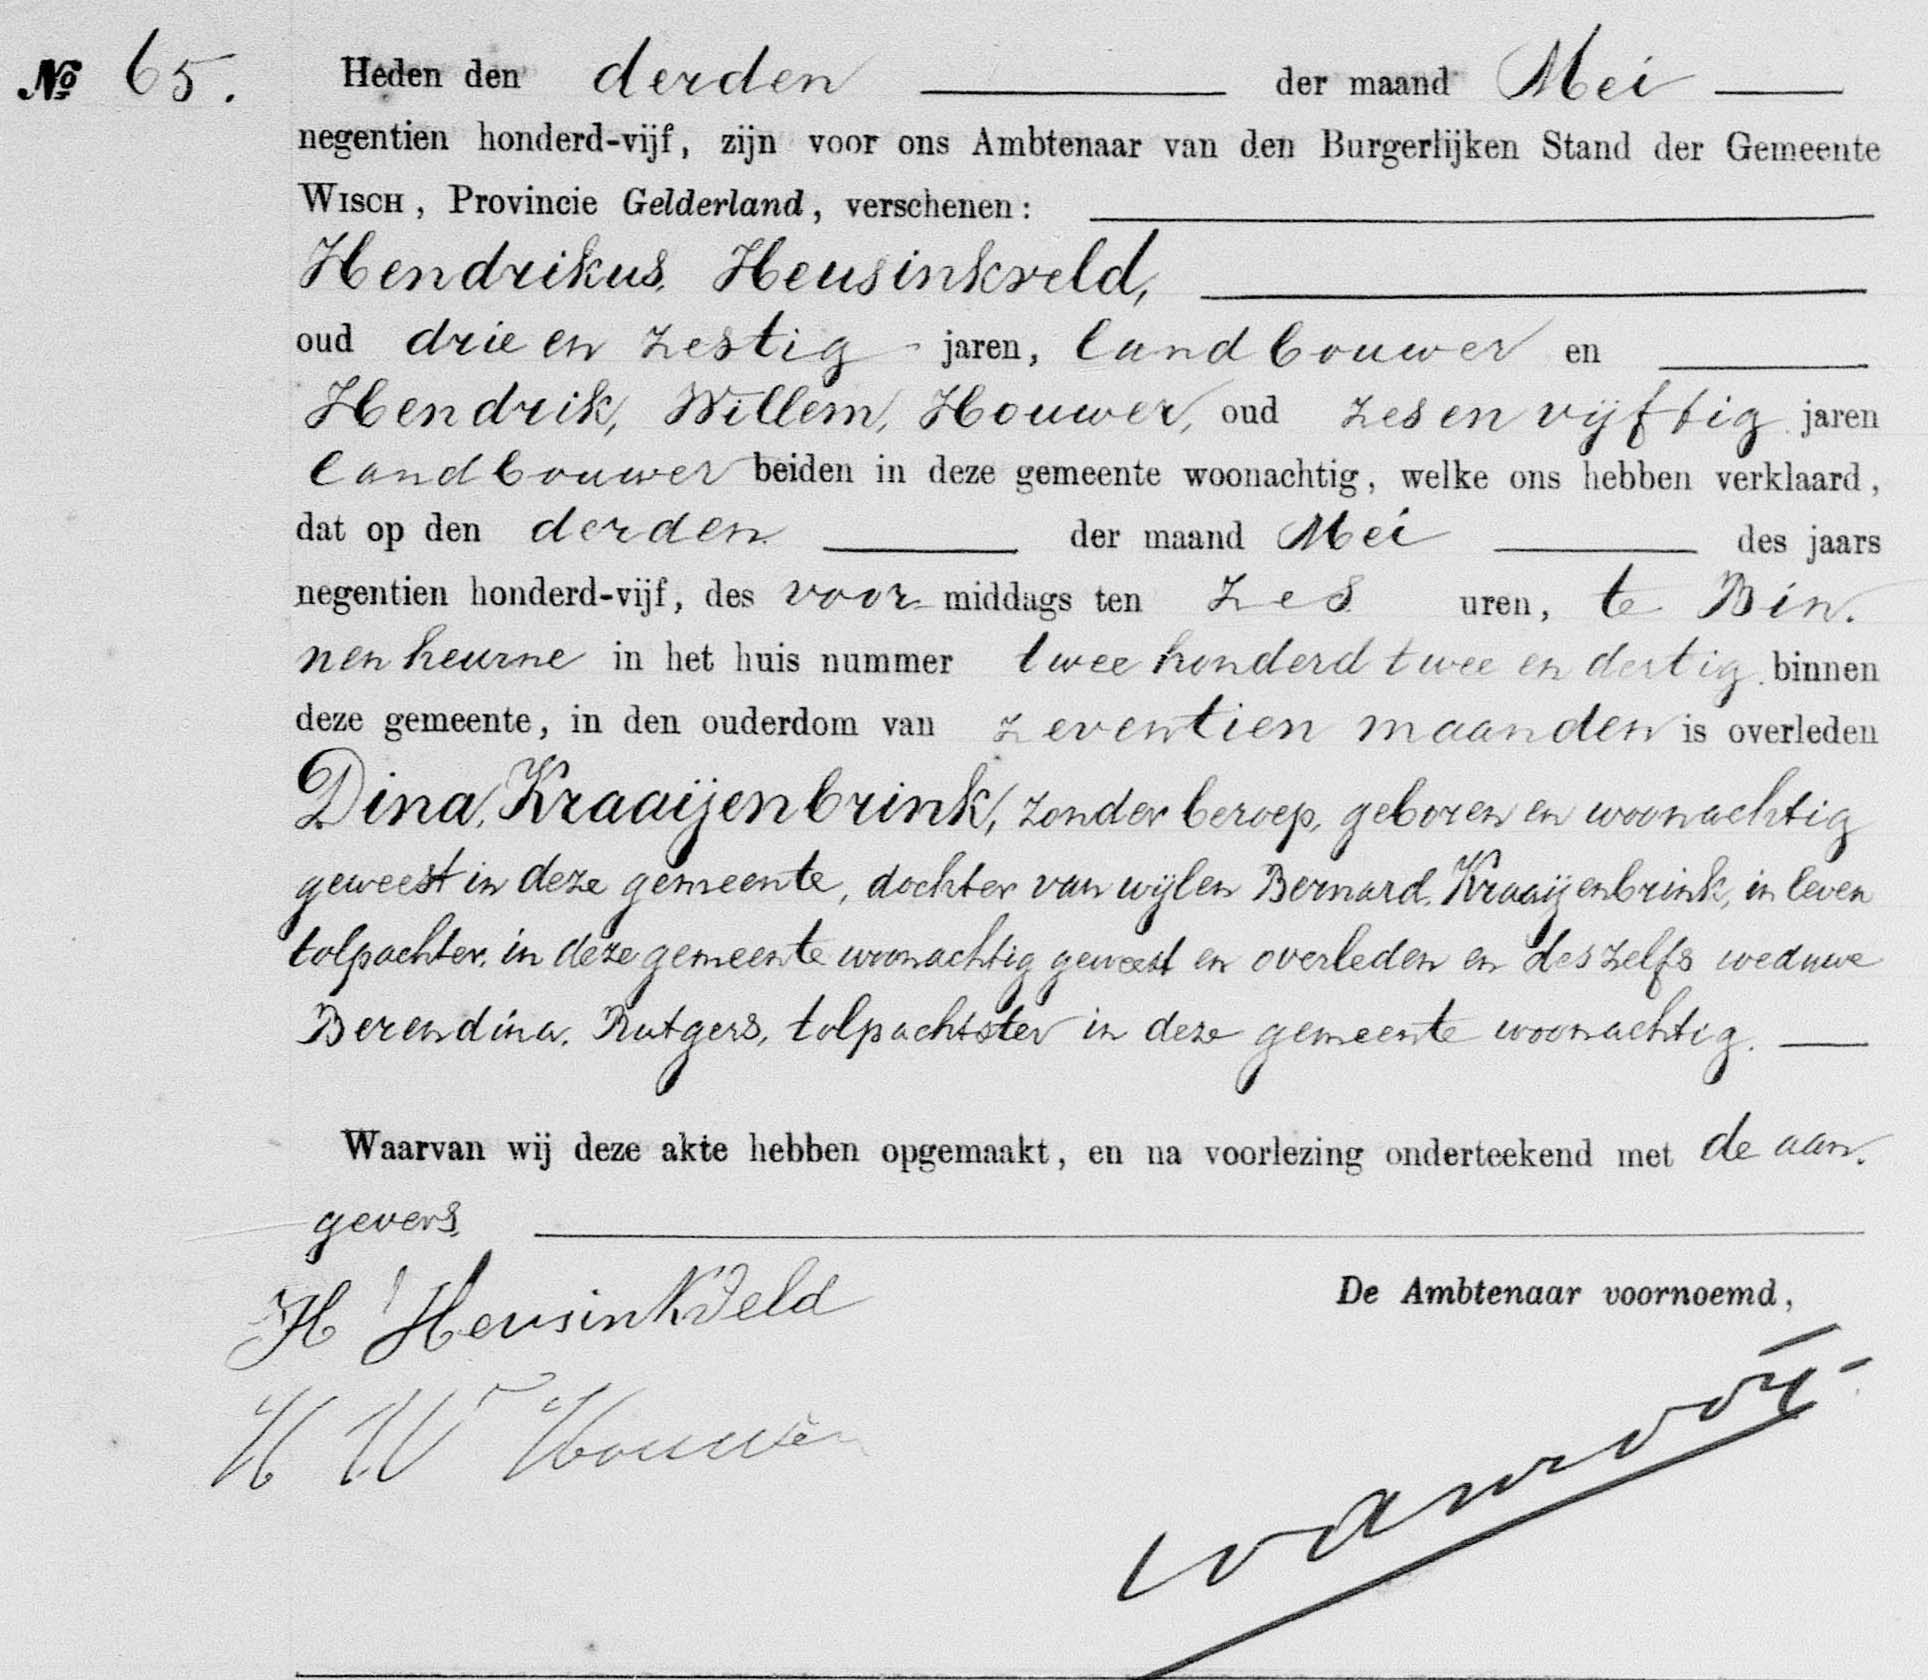 № 65. Heden den derden der maand Mei
negentien honderd-vijf, zijn voor ons Ambtenaar van den Burgerlijken Stand der Gemeente
WISCH, Provincie Gelderland, verschenen:
Hendrikus Heusinkveld,
oud drie en zestig jaren, landbouwer en
Hendrik, Willem, Houwer, oud zes en vijftig jaren
landbouwer beiden in deze gemeente woonachtig, welke ons hebben verklaard,
dat op den derden der maand Mei des jaars
negentien honderd-vijf, des voor middags ten zes uren, te Bin-
nenheurne in het huis nummer twee honderd twee en dertig binnen
deze gemeente, in den ouderdom van zeventien maanden is overleden
Dina, Kraaijenbrink, zonder beroep, geboren en woonachtig
geweest in deze gemeente, dochter van wijlen Bernard Kraaijenbrink, in leven
tolpachter, in deze gemeente woonachtig geweest en overleden en deszelfs weduwe
Berendina Rutgers, tolpachtster in deze gemeente woonachtig.
Waarvan wij deze akte hebben opgemaakt, en na voorlezing onderteekend met de aan-
gevers
De Ambtenaar voornoemd,
H Heusinkveld
H W Houwer